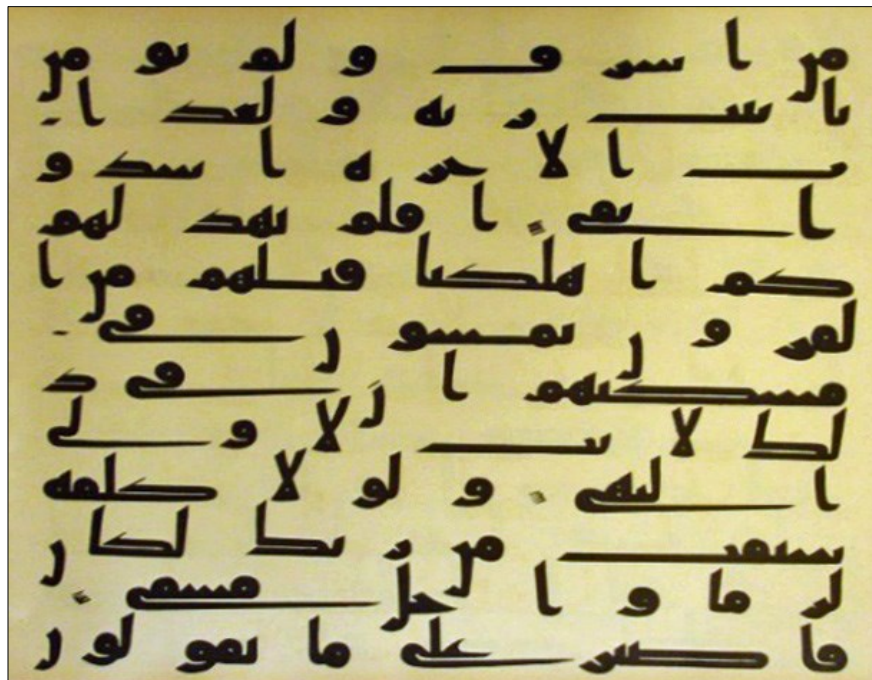 من اسرف ولم يومن
بايت ربه ولعذا
ب الاخره اشد و
ابقى افلم يهد لهم
كم اهلكنا قبلهم من ا
لقرون يمشون في
مسكنهم ان في ذ
لك لايت لاولي
النهى ولولا كلمه
سبقت من ربك لكان
لزاما واجل مسمى
فاصبر على ما يقولون